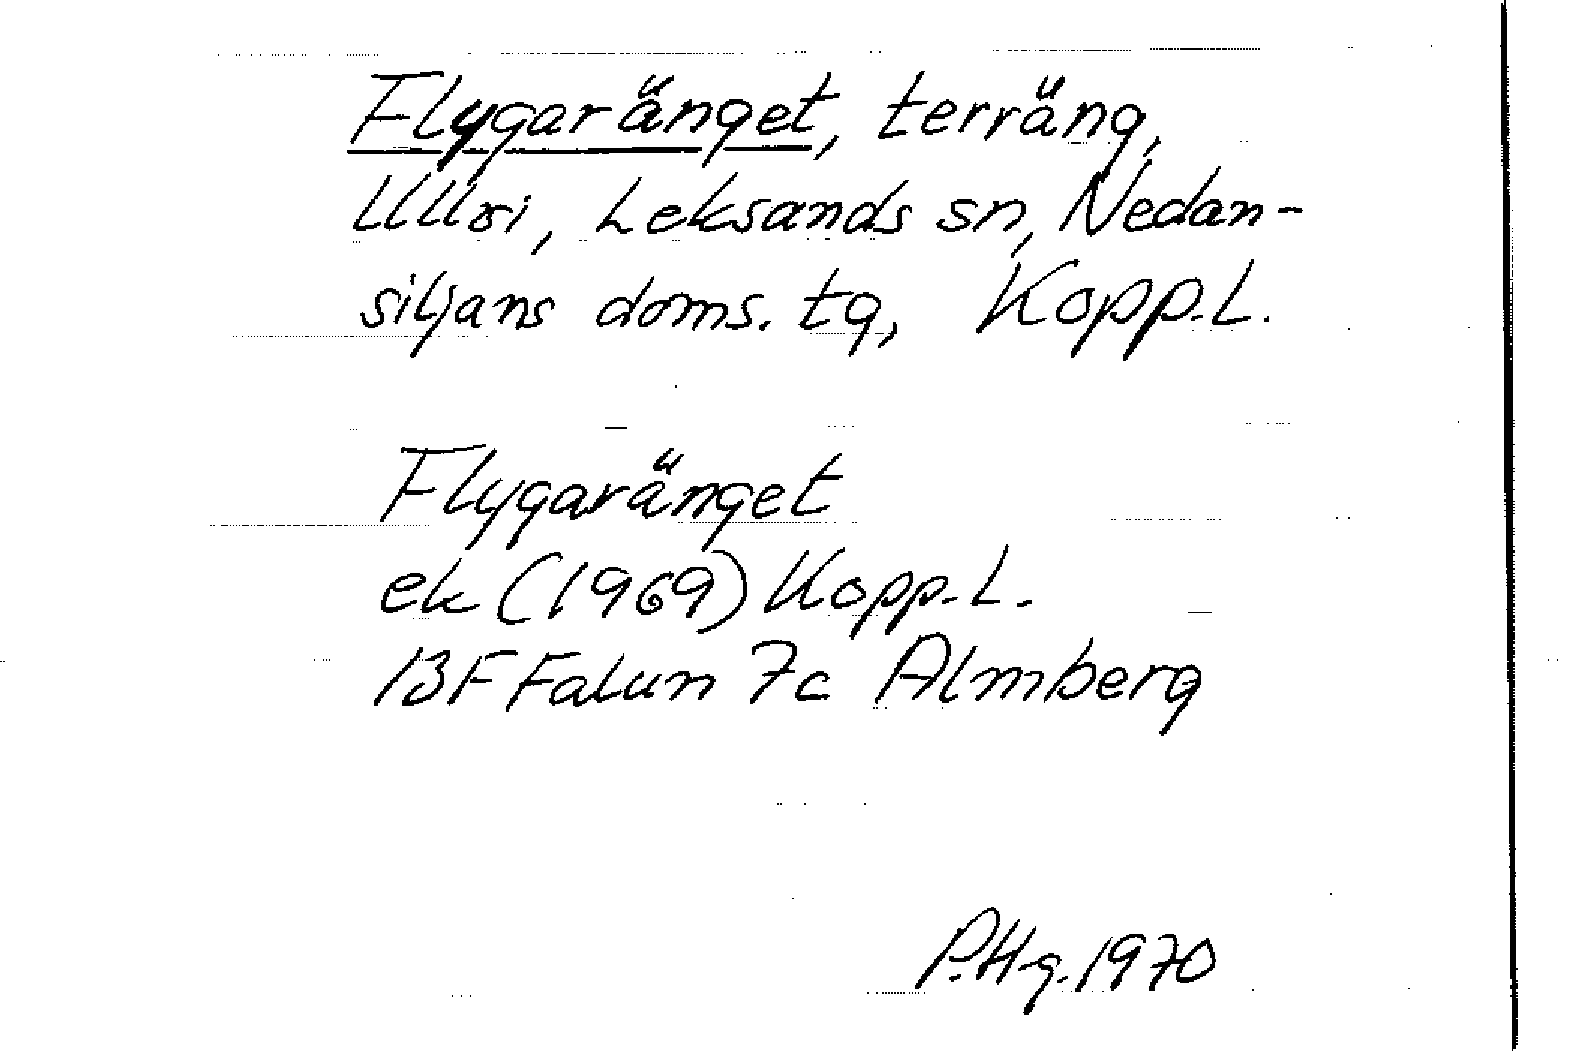 Flygaränget, terräng,
Ullvi, Leksands sn, Nedan-
siljans doms. tg, Kopp.L.
Flygaränget
ek (1969) Kopp.L.
13F Falun 7c Almberg
P.Hg.1970